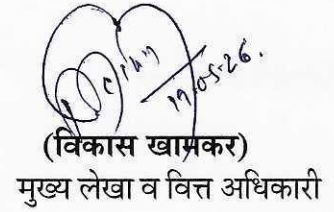 19.05.26.
(विकास खामकर)
मुख्य लेखा व वित्त अधिकारी